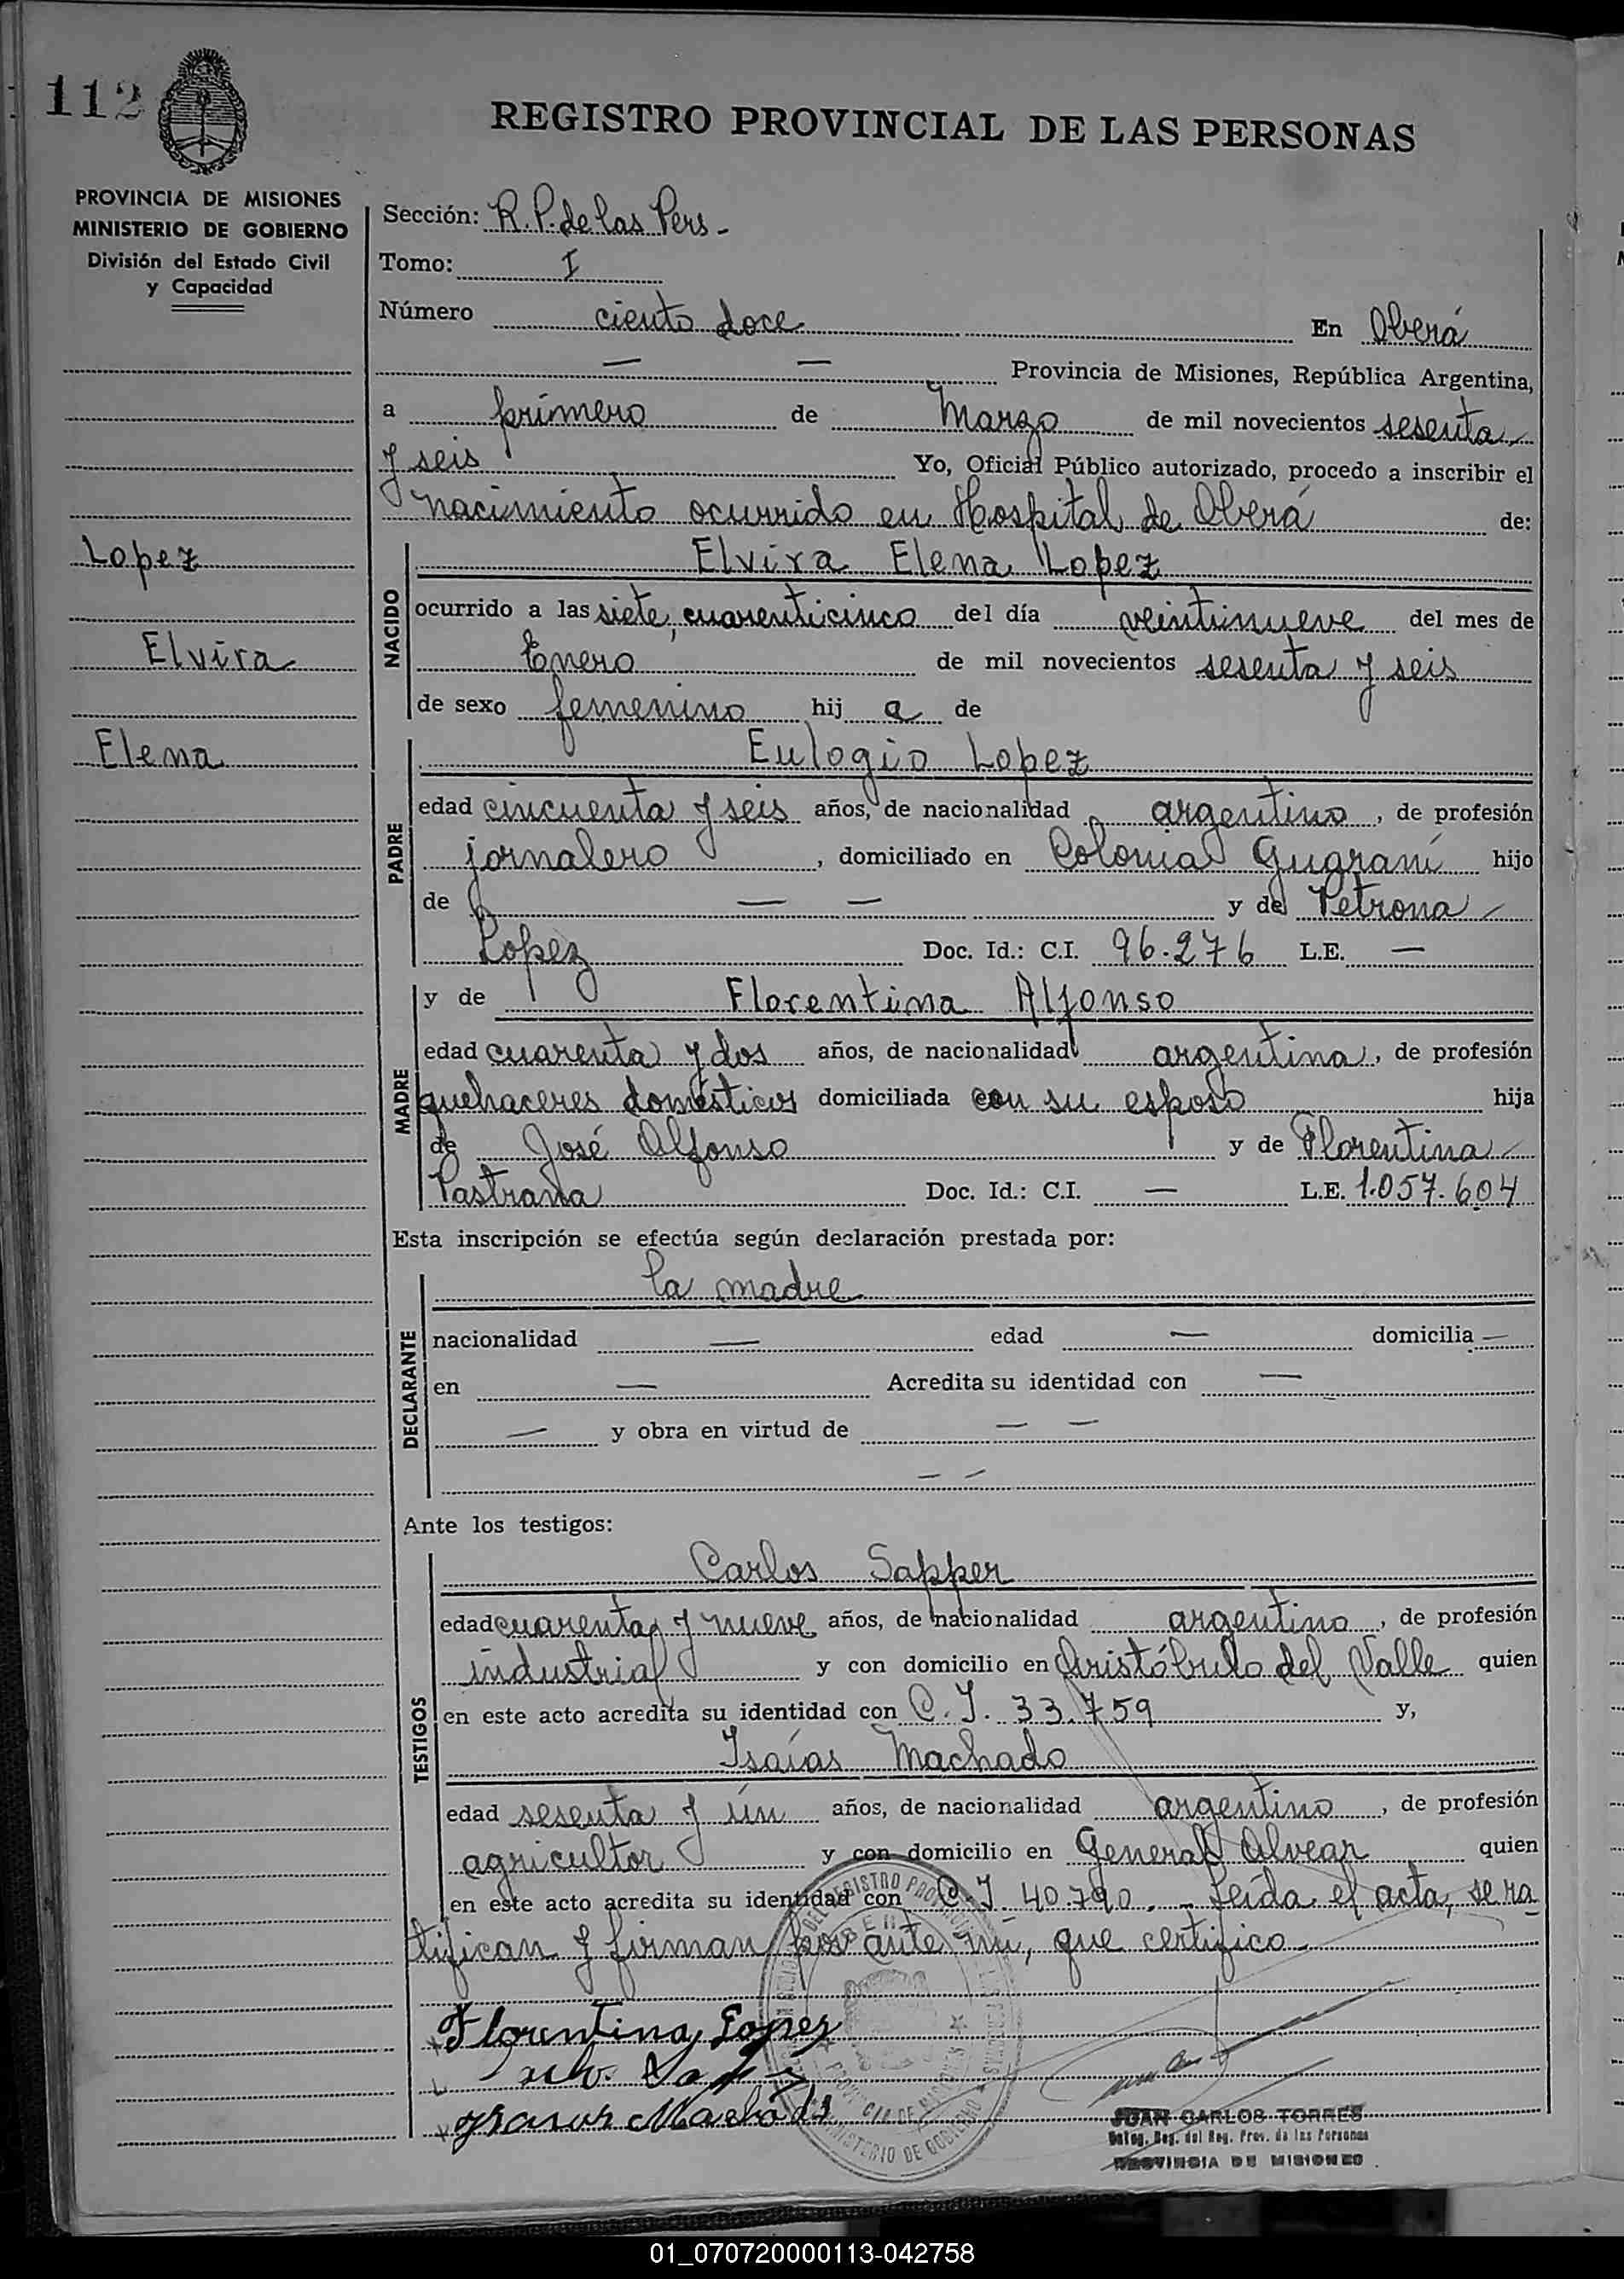 112
REGISTRO PROVINCIAL DE LAS PERSONAS
PROVINCIA DE MISIONES
MINISTERIO DE GOBIERNO
División del Estado Civil
y Capacidad
Sección: R.P. de las Pers -
Tomo: I
Número ciento doce En Oberá
— — Provincia de Misiones, República Argentina,
a primero de Marzo de mil novecientos sesenta
y seis Yo, Oficial Público autorizado, procedo a inscribir el
nacimiento ocurrido en Hospital de Oberá de:
Lopez
Elvira
Elena
NACIDO
Elvira Elena Lopez
ocurrido a las siete, cuarenticinco del día veintinueve del mes de
Enero de mil novecientos sesenta y seis
de sexo femenino hij a de
PADRE
Eulogio Lopez
edad cincuenta y seis años, de nacionalidad argentino, de profesión
jornalero, domiciliado en Colonia Guaraní hijo
de — — y de Petrona
Lopez Doc. Id.: C.I. 96.276 L.E. —
MADRE
y de Florentina Alfonso
edad cuarenta y dos años, de nacionalidad argentina, de profesión
quehaceres domésticos domiciliada con su esposo hija
de José Alfonso y de Florentina
Pastrana Doc. Id.: C.I. — L.E. 1.057.604
Esta inscripción se efectúa según declaración prestada por:
DECLARANTE
la madre
nacionalidad — edad — domicilia —
en — Acredita su identidad con —
— y obra en virtud de — —
— —
Ante los testigos:
TESTIGOS
Carlos Sapper
edad cuarenta y nueve años, de nacionalidad argentino, de profesión
industrial y con domicilio en Aristóbulo del Valle quien
en este acto acredita su identidad con C.I. 33.759 y,
Isaías Machado
edad sesenta y ún años, de nacionalidad argentino, de profesión
agricultor y con domicilio en General Alvear quien
en este acto acredita su identidad con C.I. 40.790. - Leída el acta, se ra
tifican y firman por ante mí, que certifico.
Florentina Lopez
Machado
JUAN CARLOS TORRES
Deleg. Reg. del Reg. Prov. de las Personas
PROVINCIA DE MISIONES
MINISTERIO DE GOBIERNO
01_070720000113-042758